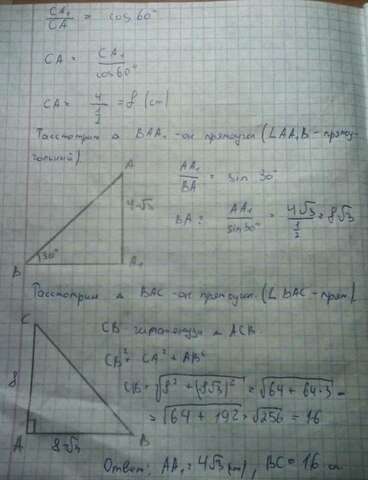 CA₁/CA = cos 60°
CA = CA₁/cos60°
CA = 4/(1/2) = 8 (cm)
Рассмотрим Δ BAA₁ - он прямоугол (∠AA₁B - прямоу-
гольный)
A
AA₁/BA = sin 30°
4√3
BA = AA₁/sin30° = 4√3/(1/2) = 8√3
30°
B
A₁
Рассмотрим Δ BAC - он прямоугол. (∠BAC - прям)
C
CB гипотенузы Δ ACB
CB² = CA² + AB²
8
CB = √(8² + (8√3)²) = √(64 + 64·3) =
= √(64 + 192) = √256 = 16
A
8√3
B
Ответ: AA₁ = 4√3 cm), BC = 16 см